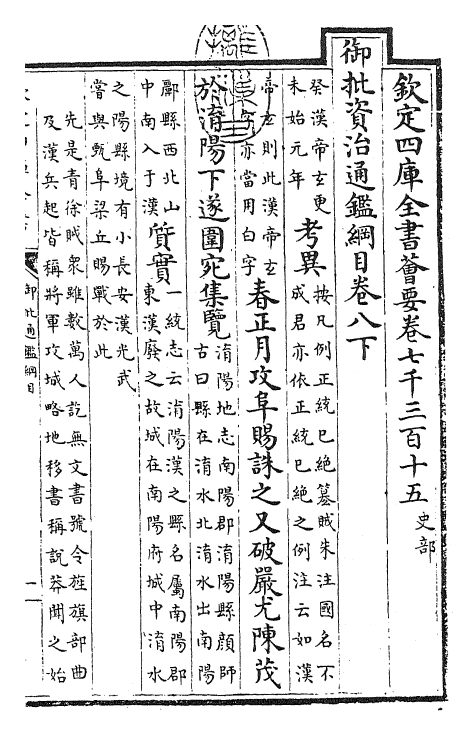 欽定四庫全書薈要卷七千三百十五 史部
御批資治通鑑綱目卷八下
癸漢帝玄更
未始元年
考異
按凡例正統已絶篡賊朱注國名不
成君亦依正統已絶之例注云如漢
帝玄則此漢帝玄
字亦當用白字
春正月攻阜賜誅之又破嚴尤陳茂
於淯陽下遂圍宛集覽
淯陽地志南陽郡淯陽縣顔師
古曰縣在淯水北淯水出南陽
酈縣西北山
中南入于漢
質實
一統志云淯陽漢之縣名屬南陽郡
東漢廢之故城在南陽府城中淯水
之陽縣境有小長安漢光武
嘗與甄阜梁丘賜戰於此
先是青徐賊衆雖數萬人訖無文書號令旌旗部曲
及漢兵起皆稱將軍攻城略地移書稱說莽聞之始
御批通鑑綱目
一